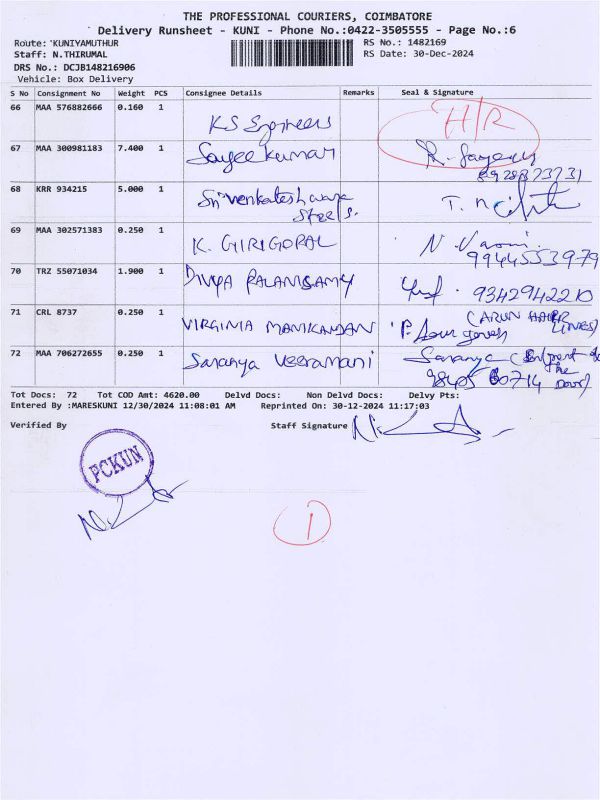 THE PROFESSIONAL COURIERS, COIMBATORE
Delivery Runsheet - KUNI - Phone No.:0422-3505555 - Page No.:6
Route: KUNIYAMUTHUR RS No.: 1482169
Staff: N.THIRUMAL RS Date: 30-Dec-2024
DRS No.: DCJB148216906
Vehicle: Box Delivery
S No Consignment No Weight PCS Consignee Details Remarks Seal & Signature
66 MAA 576882666 0.160 1 KS Engineers H/R
67 MAA 300981183 7.400 1 Sanjeekumar
68 KRR 934215 5.000 1 Sri Venkateshwara
Steels.
69 MAA 302571383 0.250 1 K. GIRIGOPAL
9944553979
70 TRZ 55071034 1.900 1 DIVYA PALANISAMY 9342942210
71 CRL 8737 0.250 1 VIRGINIA MANIKANDAN (ARUN HAIR
LINES)
72 MAA 706272655 0.250 1 Saranya Veeramani Saranya
98405 60714
the
door)
Tot Docs: 72 Tot COD Amt: 4620.00 Delvd Docs: Non Delvd Docs: Delvy Pts:
Entered By :MARESKUNI 12/30/2024 11:08:01 AM Reprinted On: 30-12-2024 11:17:03
Verified By Staff Signature
PCKUN
1